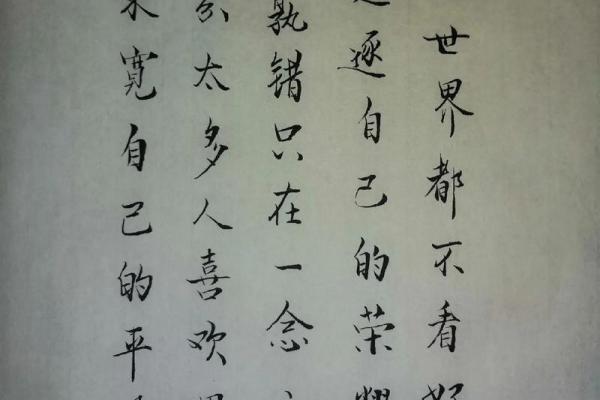 世界都不看好
逐自己的荣耀
孰错只在一念
太多人喜欢
宽自己的平